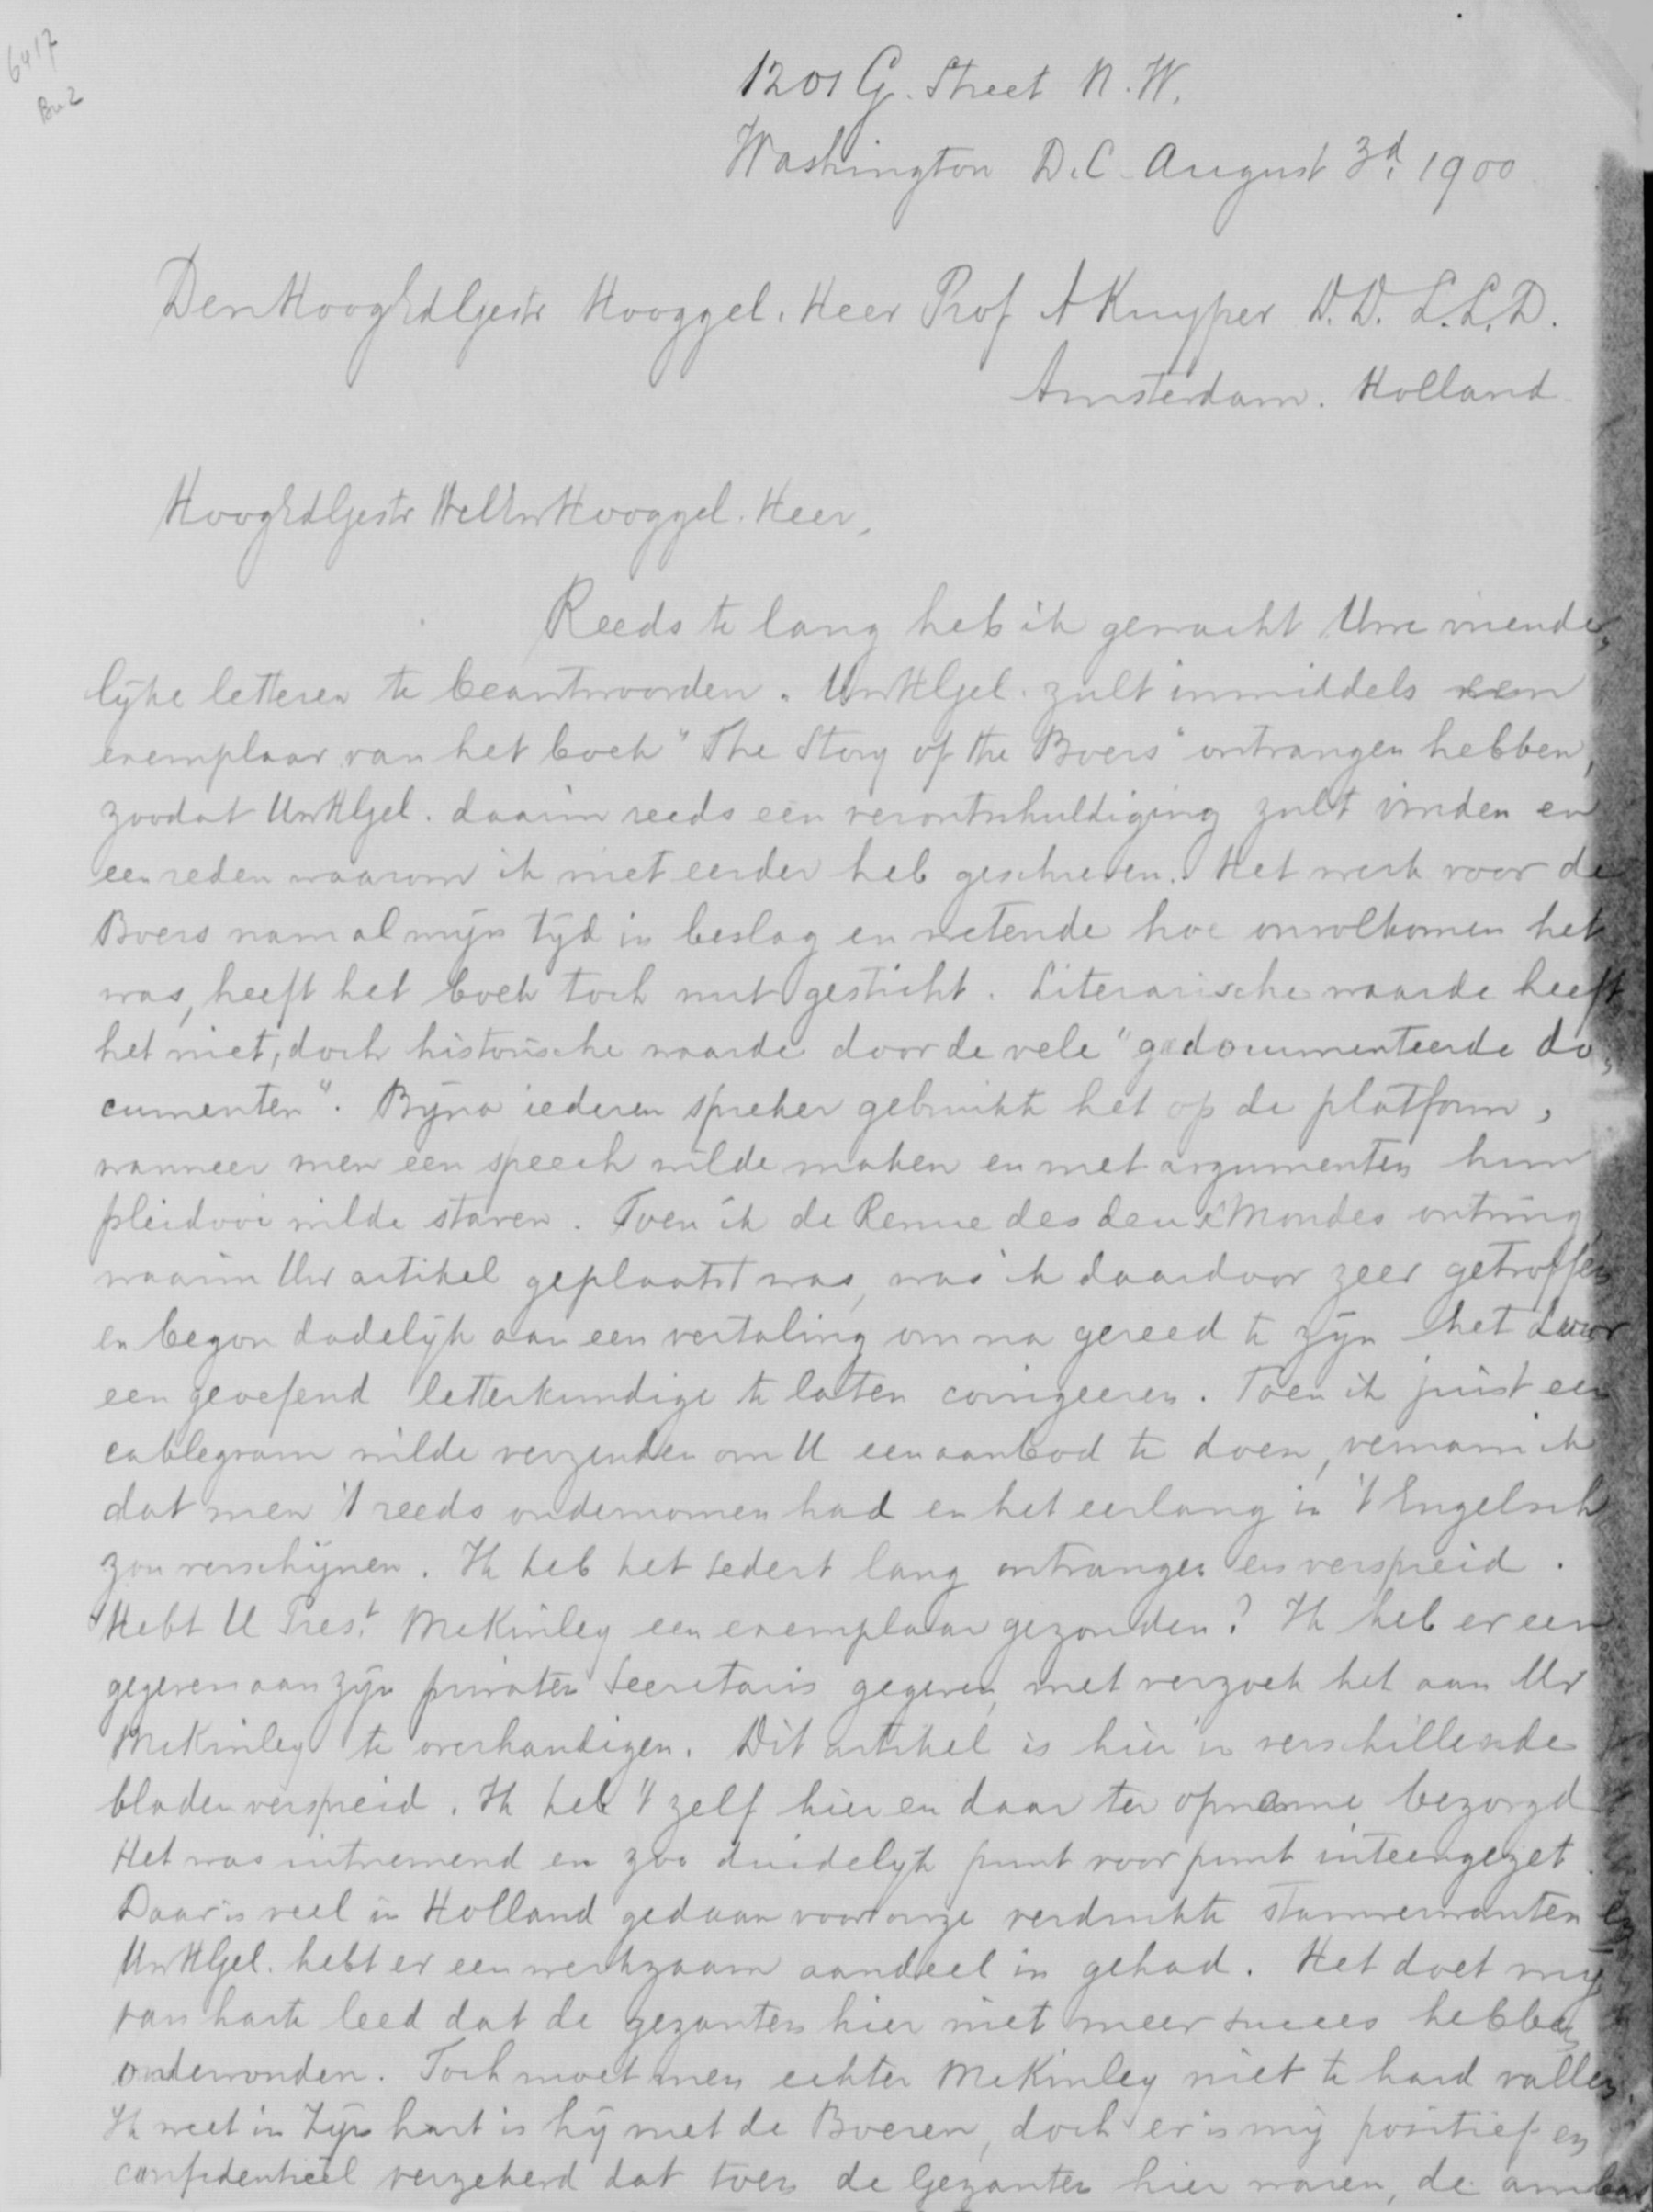 6417
Bu2
1201 G. Street N.W.
Washington D.C. August 3d. 1900
Den HoogEdlGestr Hooggel. Heer Prof A Kuyper D.D. L.L.D.
Amsterdam. Holland
HoogEdlGestr WelEw Hooggel. Heer,
Reeds te lang heb ik gewacht Uwe vriende„
lijke letteren te beantwoorden. UwHlGel. zult inmiddels een
exemplaar van het boek "The Story of the Boers" ontvangen hebben,
zoodat UwHlGel. daarin reeds een verontschuldiging zult vinden en
een reden waarom ik niet eerder heb geschreven. Het werk voor de
Boers nam al mijn tijd in beslag en wetende hoe onvolkomen het
was, heeft het boek toch nut gesticht. Literarische waarde heeft
het niet, doch historische waarde door de vele "gedocumenteerde do„
cumenten". Bijna iederen spreker gebruikte het op de platform,
wanneer men een speech wilde maken en met argumenten hun
pleidooi wilde staven. Toen ik de Revue des deux Mondes ontving,
waarin Uw artikel geplaatst was, was ik daardoor zeer getroffen
en begon dadelijk aan een vertaling om na gereed te zijn het door
een geoefend letterkundige te laten corrigeeren. Toen ik juist een
cablegram wilde verzenden om U een aanbod te doen, vernam ik
dat men 't reeds ondernomen had en het eerlang in 't Engelsch
zou verschijnen. Ik heb het sedert lang ontvangen en verspreid.
Hebt U Prest. McKinley een exemplaar gezonden? Ik heb er een
gegeven aan zijn privaten Secretaris gegeven, met verzoek het aan Mr
McKinley te overhandigen. Dit artikel is hier in verschillende
bladen verspreid. Ik heb 't zelf hier en daar ter opname bezorgd
Het was uitnemend en zoo duidelijk punt voor punt uiteengezet.
Daar is veel in Holland gedaan voor onze verdrukte stamverwanten en
UwHlGel. hebt er een werkzaam aandeel in gehad. Het doet mij
van harte leed dat de gezanten hier niet meer succes hebben
ondervonden. Toch moet men echter McKinley niet te hard vallen.
Ik weet in zijn hart is hij met de Boeren, doch er is mij positief en
confidentieel verzekerd dat toen de Gezanten hier waren, de ambas